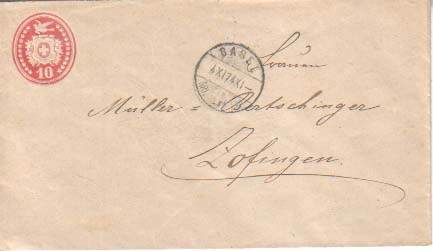 10
BASEL
4 XI 74 XI
Frauen
Müller = Bertschinger
Zofingen.